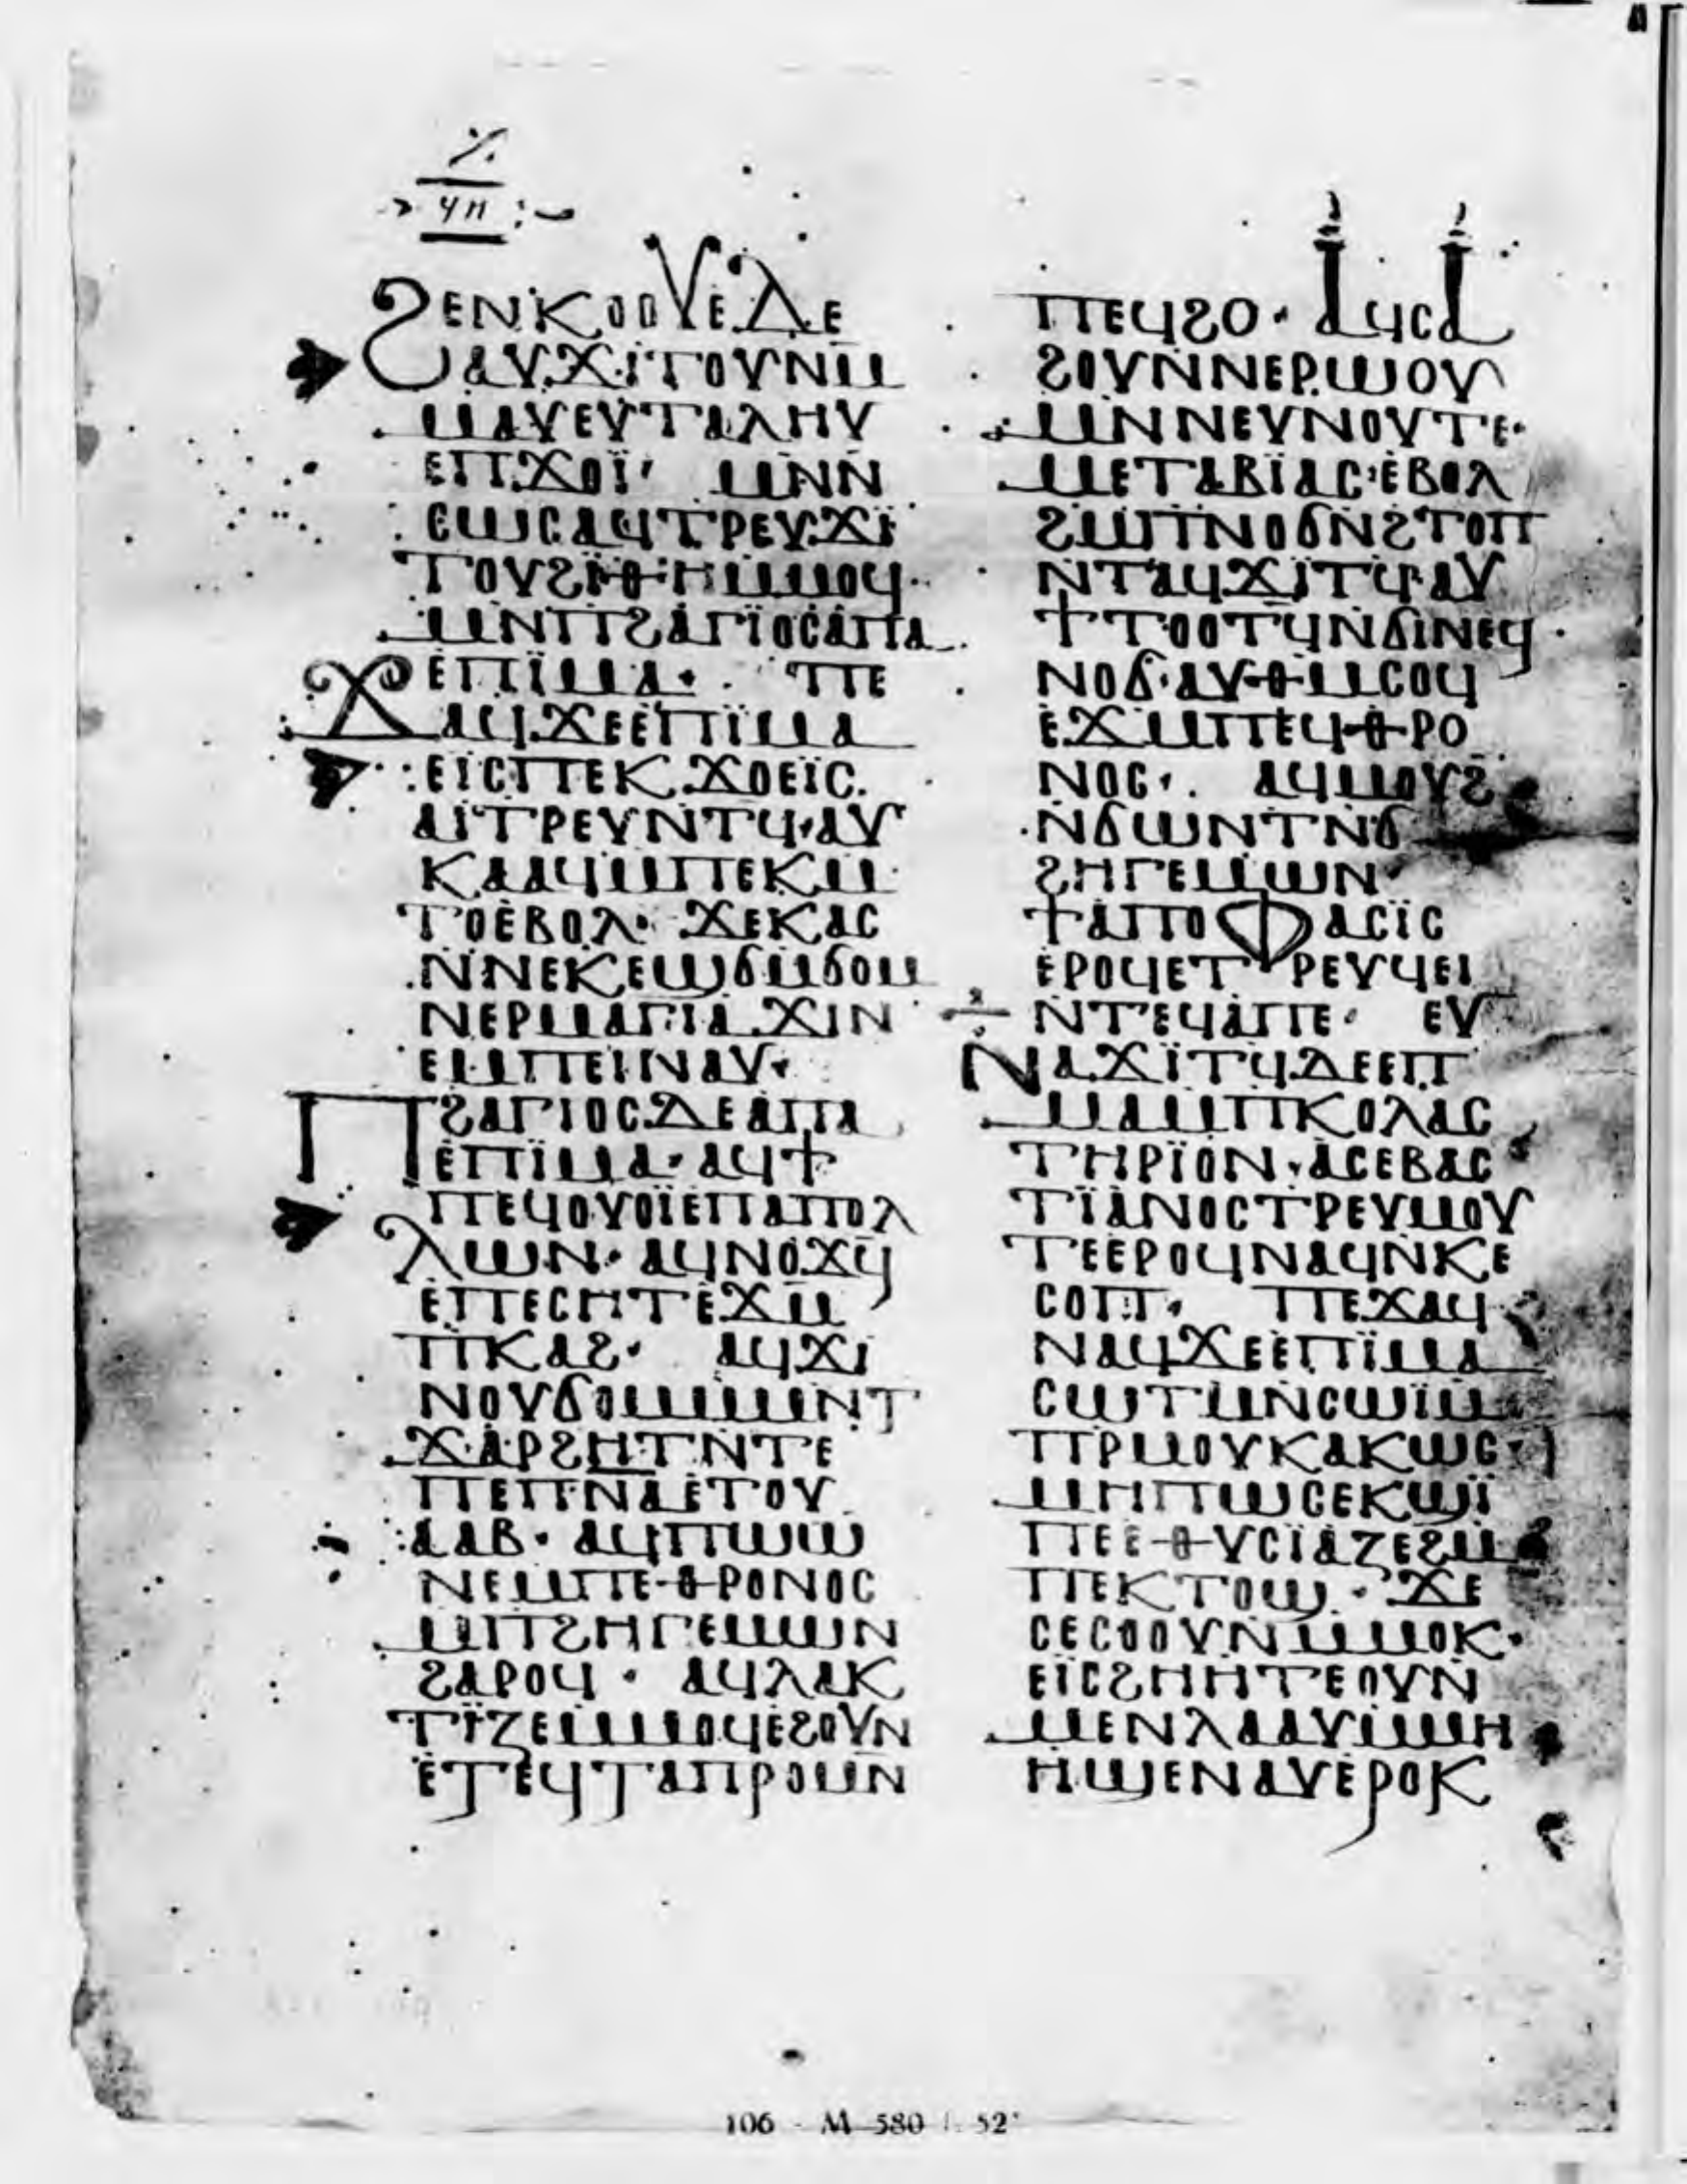 ϥⲏ
Ϩⲉⲛⲕⲟⲟⲩⲉⲇⲉ
ⲁⲩϫⲓⲧⲟⲩⲛⲙ
ⲙⲁⲩⲉⲩⲧⲁⲗⲏⲩ
ⲉⲡϫⲟⲓ̈ ⲙⲛⲛ
ⲥⲱⲥⲁϥⲧⲣⲉⲩϫⲓ
ⲧⲟⲩϩⲓⲑⲏⲙⲙⲟϥ·
ⲙⲛⲡϩⲁⲅⲓⲟⲥⲁⲡⲁ
ⲉⲡⲓ̈ⲙⲁ· ⲡⲉ
ϫⲁϥϫⲉⲉⲡⲓ̈ⲙⲁ
ⲉⲓ̈ⲥⲡⲉⲕϫⲟⲉⲓ̈ⲥ
ⲁⲓⲧⲣⲉⲩⲛⲧϥ·ⲁⲩ
ⲕⲁⲁϥⲙⲡⲉⲕⲙ
ⲧⲟⲉⲃⲟⲗ· ϫⲉⲕⲁⲥ
ⲛⲛⲉⲕⲉϣϭⲙϭⲟⲙ
ⲛⲉⲣⲙⲁⲅⲓⲁϫⲓⲛ
ⲉⲙⲡⲉⲓⲛⲁⲩ·
ⲡϩⲁⲅⲓⲟⲥⲇⲉⲁⲡⲁ
ⲉⲡⲓ̈ⲙⲁ·ⲁϥϯ
ⲡⲉϥⲟⲩⲟⲓ̈ⲉⲡⲁⲡⲟⲗ
ⲗⲱⲛ·ⲁϥⲛⲟϫϥ
ⲉⲡⲉⲥⲏⲧⲉϫⲙ
ⲡⲕⲁϩ· ⲁϥϫⲓ
ⲛⲟⲩϭⲟⲙⲙⲙⲛⲧ
ϫⲁⲣϩⲏⲧⲛⲧⲉ
ⲡⲉⲡⲛⲁⲉⲧⲟⲩ
ⲁⲁⲃ·ⲁϥⲡⲱⲱ
ⲛⲉⲙⲡⲉⲑⲣⲟⲛⲟⲥ
ⲙⲡϩⲏⲅⲉⲙⲱⲛ
ϩⲁⲣⲟϥ·ⲁϥⲗⲁⲕ
ⲧⲓ̈ⲍⲉⲙⲙⲟϥⲉϩⲟⲩⲛ
ⲉⲧⲉϥⲧⲁⲡⲣⲟⲙⲛ
ⲡⲉϥϩⲟ·ⲁϥⲥⲁ
ϩⲟⲩⲛⲛⲉⲣⲱⲟⲩ
ⲙⲛⲛⲉⲩⲛⲟⲩⲧⲉ·
ⲙⲉⲧⲁⲃⲓ̈ⲁⲥ·ⲉⲃⲟⲗ
ϩⲙⲡⲛⲟϭⲛϩⲧⲟⲡ
ⲛⲧⲁϥϫⲓⲧϥ·ⲁⲩ
ϯⲧⲟⲟⲧϥⲛϭⲓⲛⲉϥ
ⲛⲟϭ·ⲁⲩⲑⲙⲥⲟϥ
ⲉϫⲙⲡⲉϥⲑⲣⲟ
ⲛⲟⲥ· ⲁϥⲙⲟⲩϩ
ⲛϭⲱⲛⲧⲛϭ
ϩⲏⲅⲉⲙⲱⲛ
ϯⲁⲡⲟⲫⲁⲥⲓ̈ⲥ
ⲉⲣⲟϥⲉⲧⲣⲉⲩϥⲉⲓ
ⲛⲧⲉϥⲁⲡⲉ· ⲉⲩ
ⲛⲁϫⲓ̈ⲧϥⲇⲉⲉⲡ
ⲙⲁⲙⲡⲕⲟⲗⲁⲥ
ⲧⲏⲣⲓ̈ⲟⲛ·ⲁⲥⲉⲃⲁⲥ
ⲧⲓ̈ⲁⲛⲟⲥⲧⲣⲉⲩⲙⲟⲩ
ⲧⲉⲉⲣⲟϥⲛⲁϥⲛⲕⲉ
ⲥⲟⲡ· ⲡⲉϫⲁϥ
ⲛⲁϥϫⲉⲉⲡⲓ̈ⲙⲁ
ⲥⲱⲧⲙⲛⲥⲱⲓ̈ⲙ
ⲡⲣⲙⲟⲩⲕⲁⲕⲱⲥ·
ⲙⲏⲡⲱⲥⲉⲕϣⲓ̈
ⲡⲉⲉⲑⲩⲥⲓ̈ⲁⲍⲉϩⲙ
ⲡⲉⲕⲧⲟϣ· ϫⲉ
ⲥⲉⲥⲟⲟⲩⲛⲙⲙⲟⲕ·
ⲉⲓ̈ⲥϩⲏⲏⲧⲉⲟⲩⲛ
ⲙⲉⲛⲗⲁⲁⲩⲙⲙⲏ
ⲏϣⲉⲛⲁⲩⲉⲣⲟⲕ
106 - M 580 f. 52